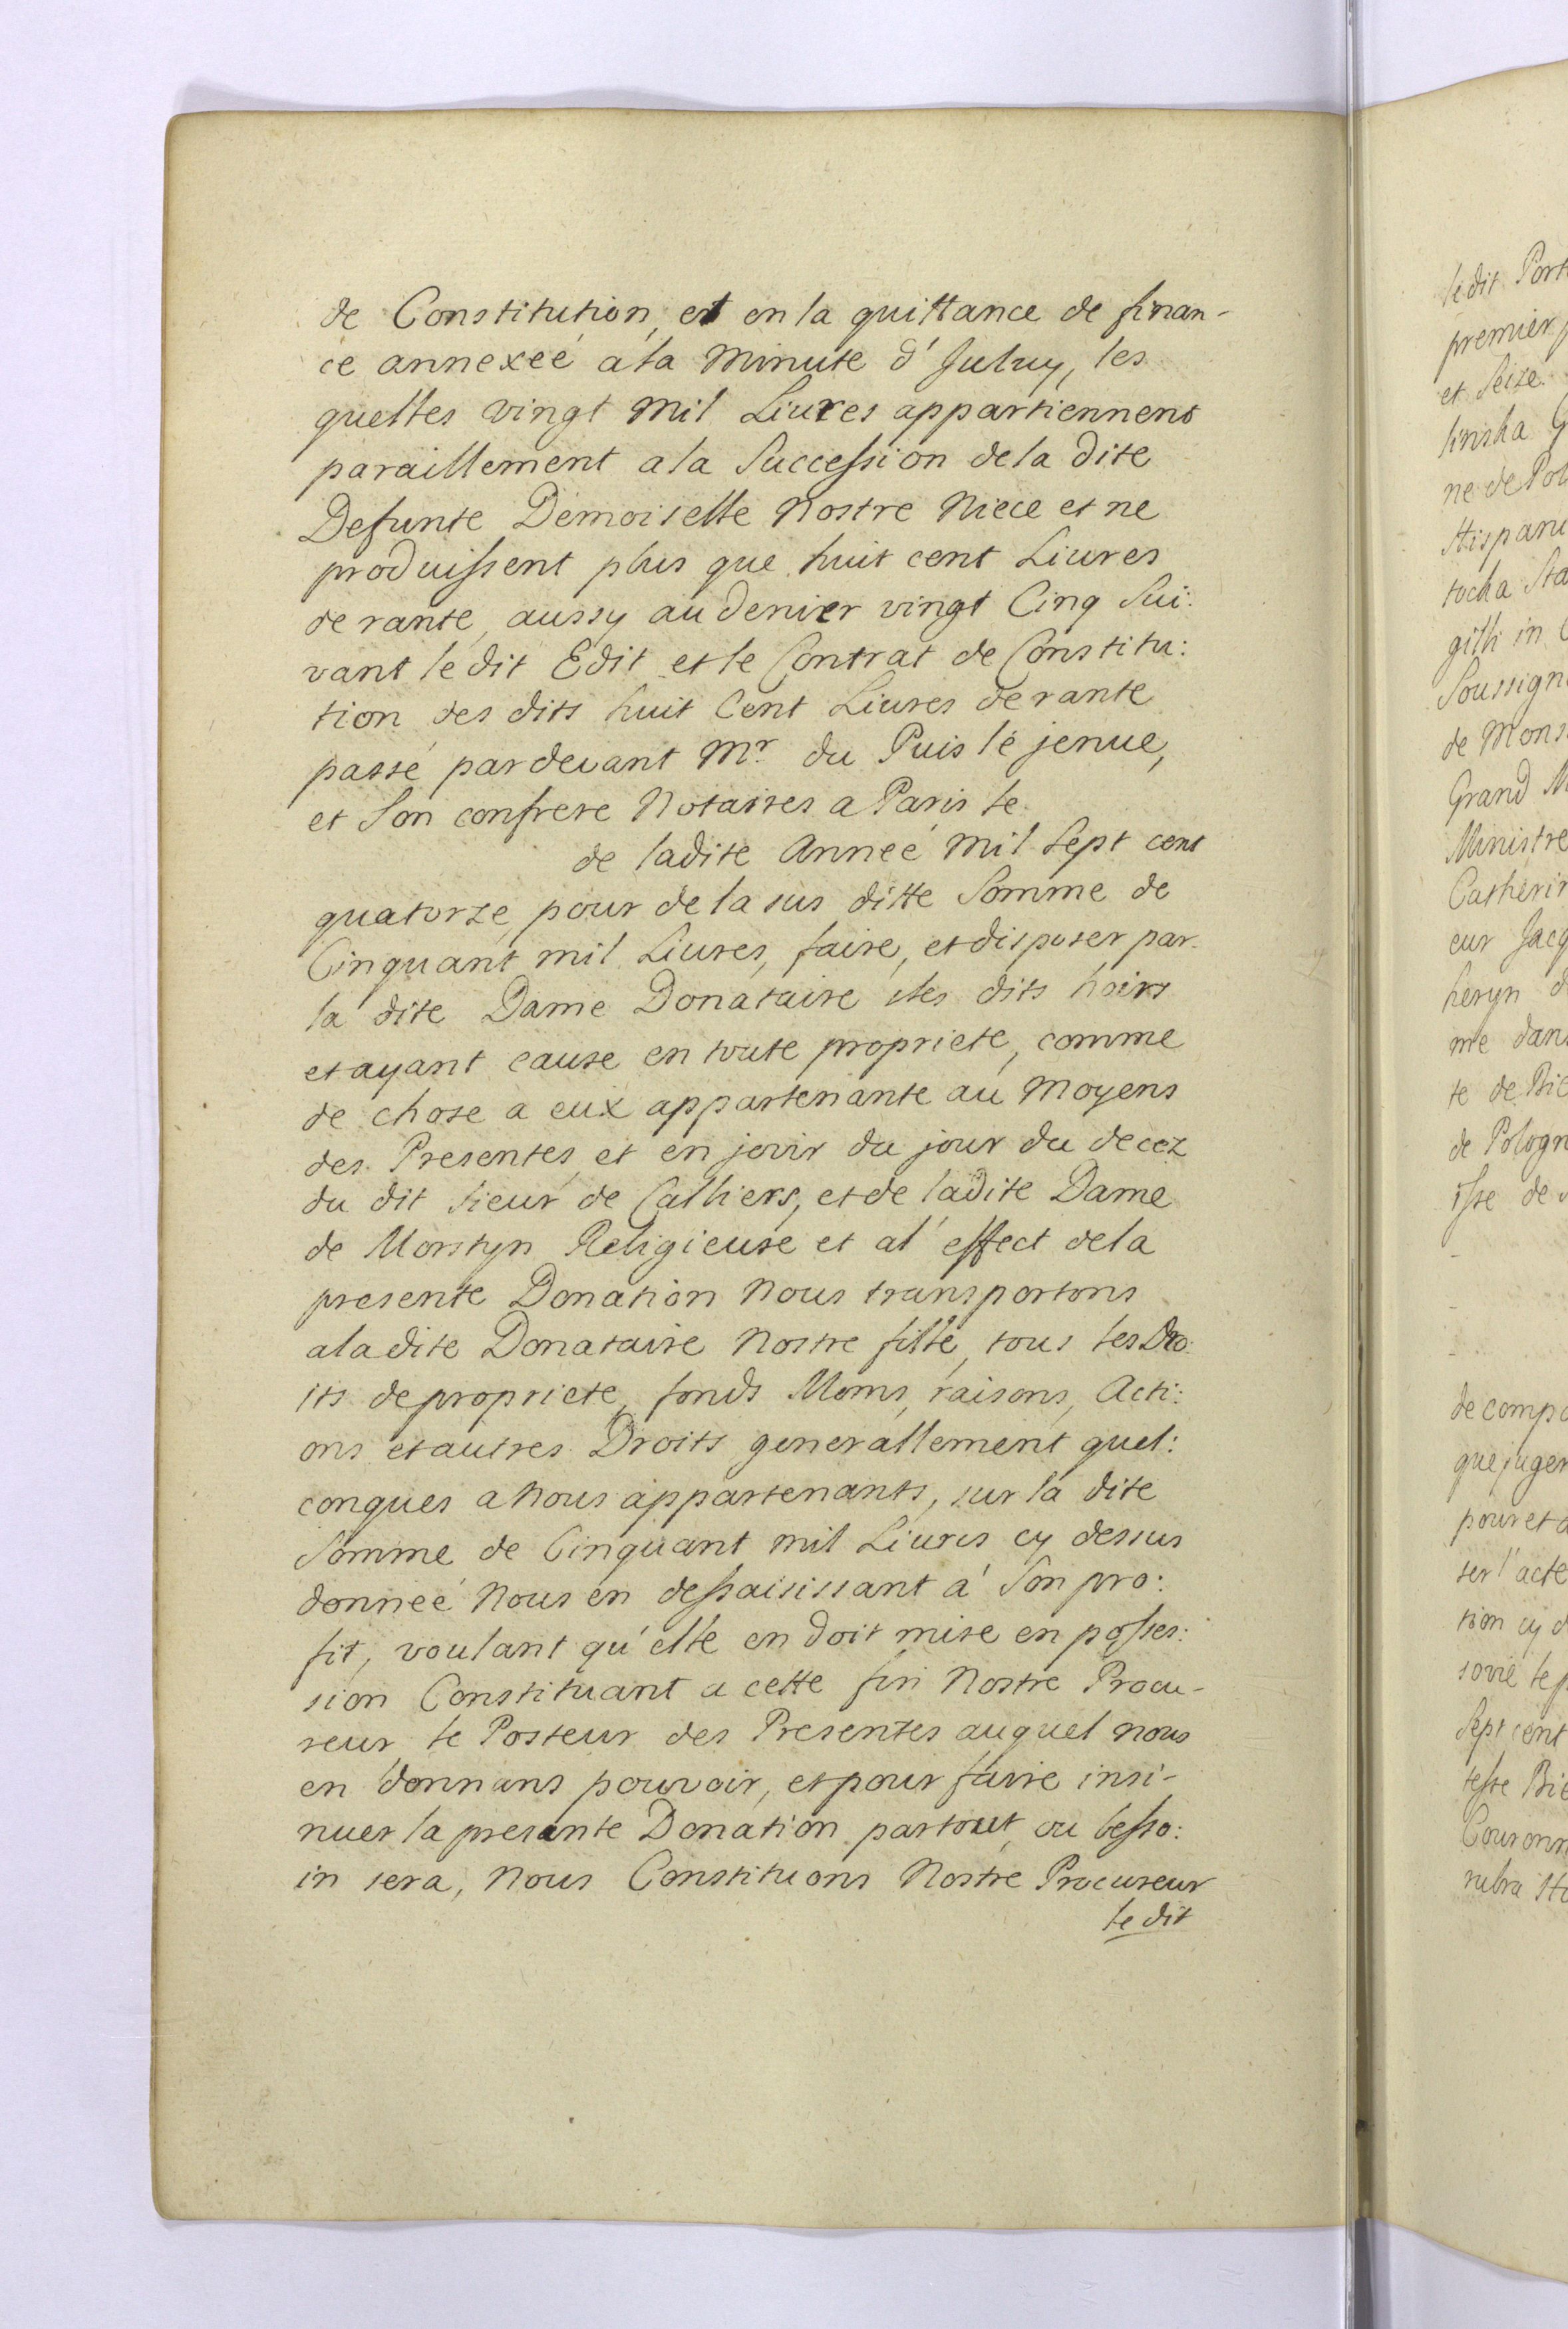 de Constitution, et en la quittance de finan-
ce annexeé a la Minute d'Juluy, les
quelles vingt Mil Liures appartiennent
paraillement a la Succession de la dite
Defunte Demoiselle Nostre Niece et ne
produissent plus que huit cent Liures
de rante, aussy au denier vingt Cinq Sui:
vant le dit Edit et le Contrat de Constitu:
tion des dits huit Cent Liures de rante
passé pardeuant Mr. du Puis le jenue,
et Son confrere Notaires a Paris le
de ladite Anneé Mil Sept cent
quatorze, pour de la sus ditte Somme de
Cinquant mil Liures, faire, et disposer par
la dite Dame Donataire les dits hoirs
et ayant cause en toute proprieté, comme
de chose a eux appartenante au Moyens
des Presentes, et en jovir du jour du decez
du dit sieur de Calliers, et de ladite Dame
de Morstyn Religieuse et al'effect dela
presente Donation Nous transportons
aladite Donataire Nostre fille, tous les Dro:
its de proprieté, fonds Moms, raisons, Acti:
ons et autres Droits generallement quel:
conques a Nous appartenants, sur la dite
Somme de Cinquant mil Liures cy dessus
donneé Nous en dessaisissant á Son pro:
fit, voulant qu'elle en doit mise en posses:
sion Constituant a cette fin Nostre Procu-
reur le Porteur des Presentes auquel nous
en donnans pouvoir, et pour faire insi-
nuer la presante Donation partout ou besso:
in sera, Nous Constituons Nostre Procureur
le dit
ledit Port
premier
et Seize
linska G
ne de Pol
Hispan
tocha Sta
gilli in
Soussign
de Mons
Grand M
Ministre
Catherin
eur Jacq
heryn d
me dans
te de Bie
de Pologn
isse de
de compa
que juger
pour et a
ser l'acte
tion cy d
sovie le p
Sept cent
tesse Bie
Couronn